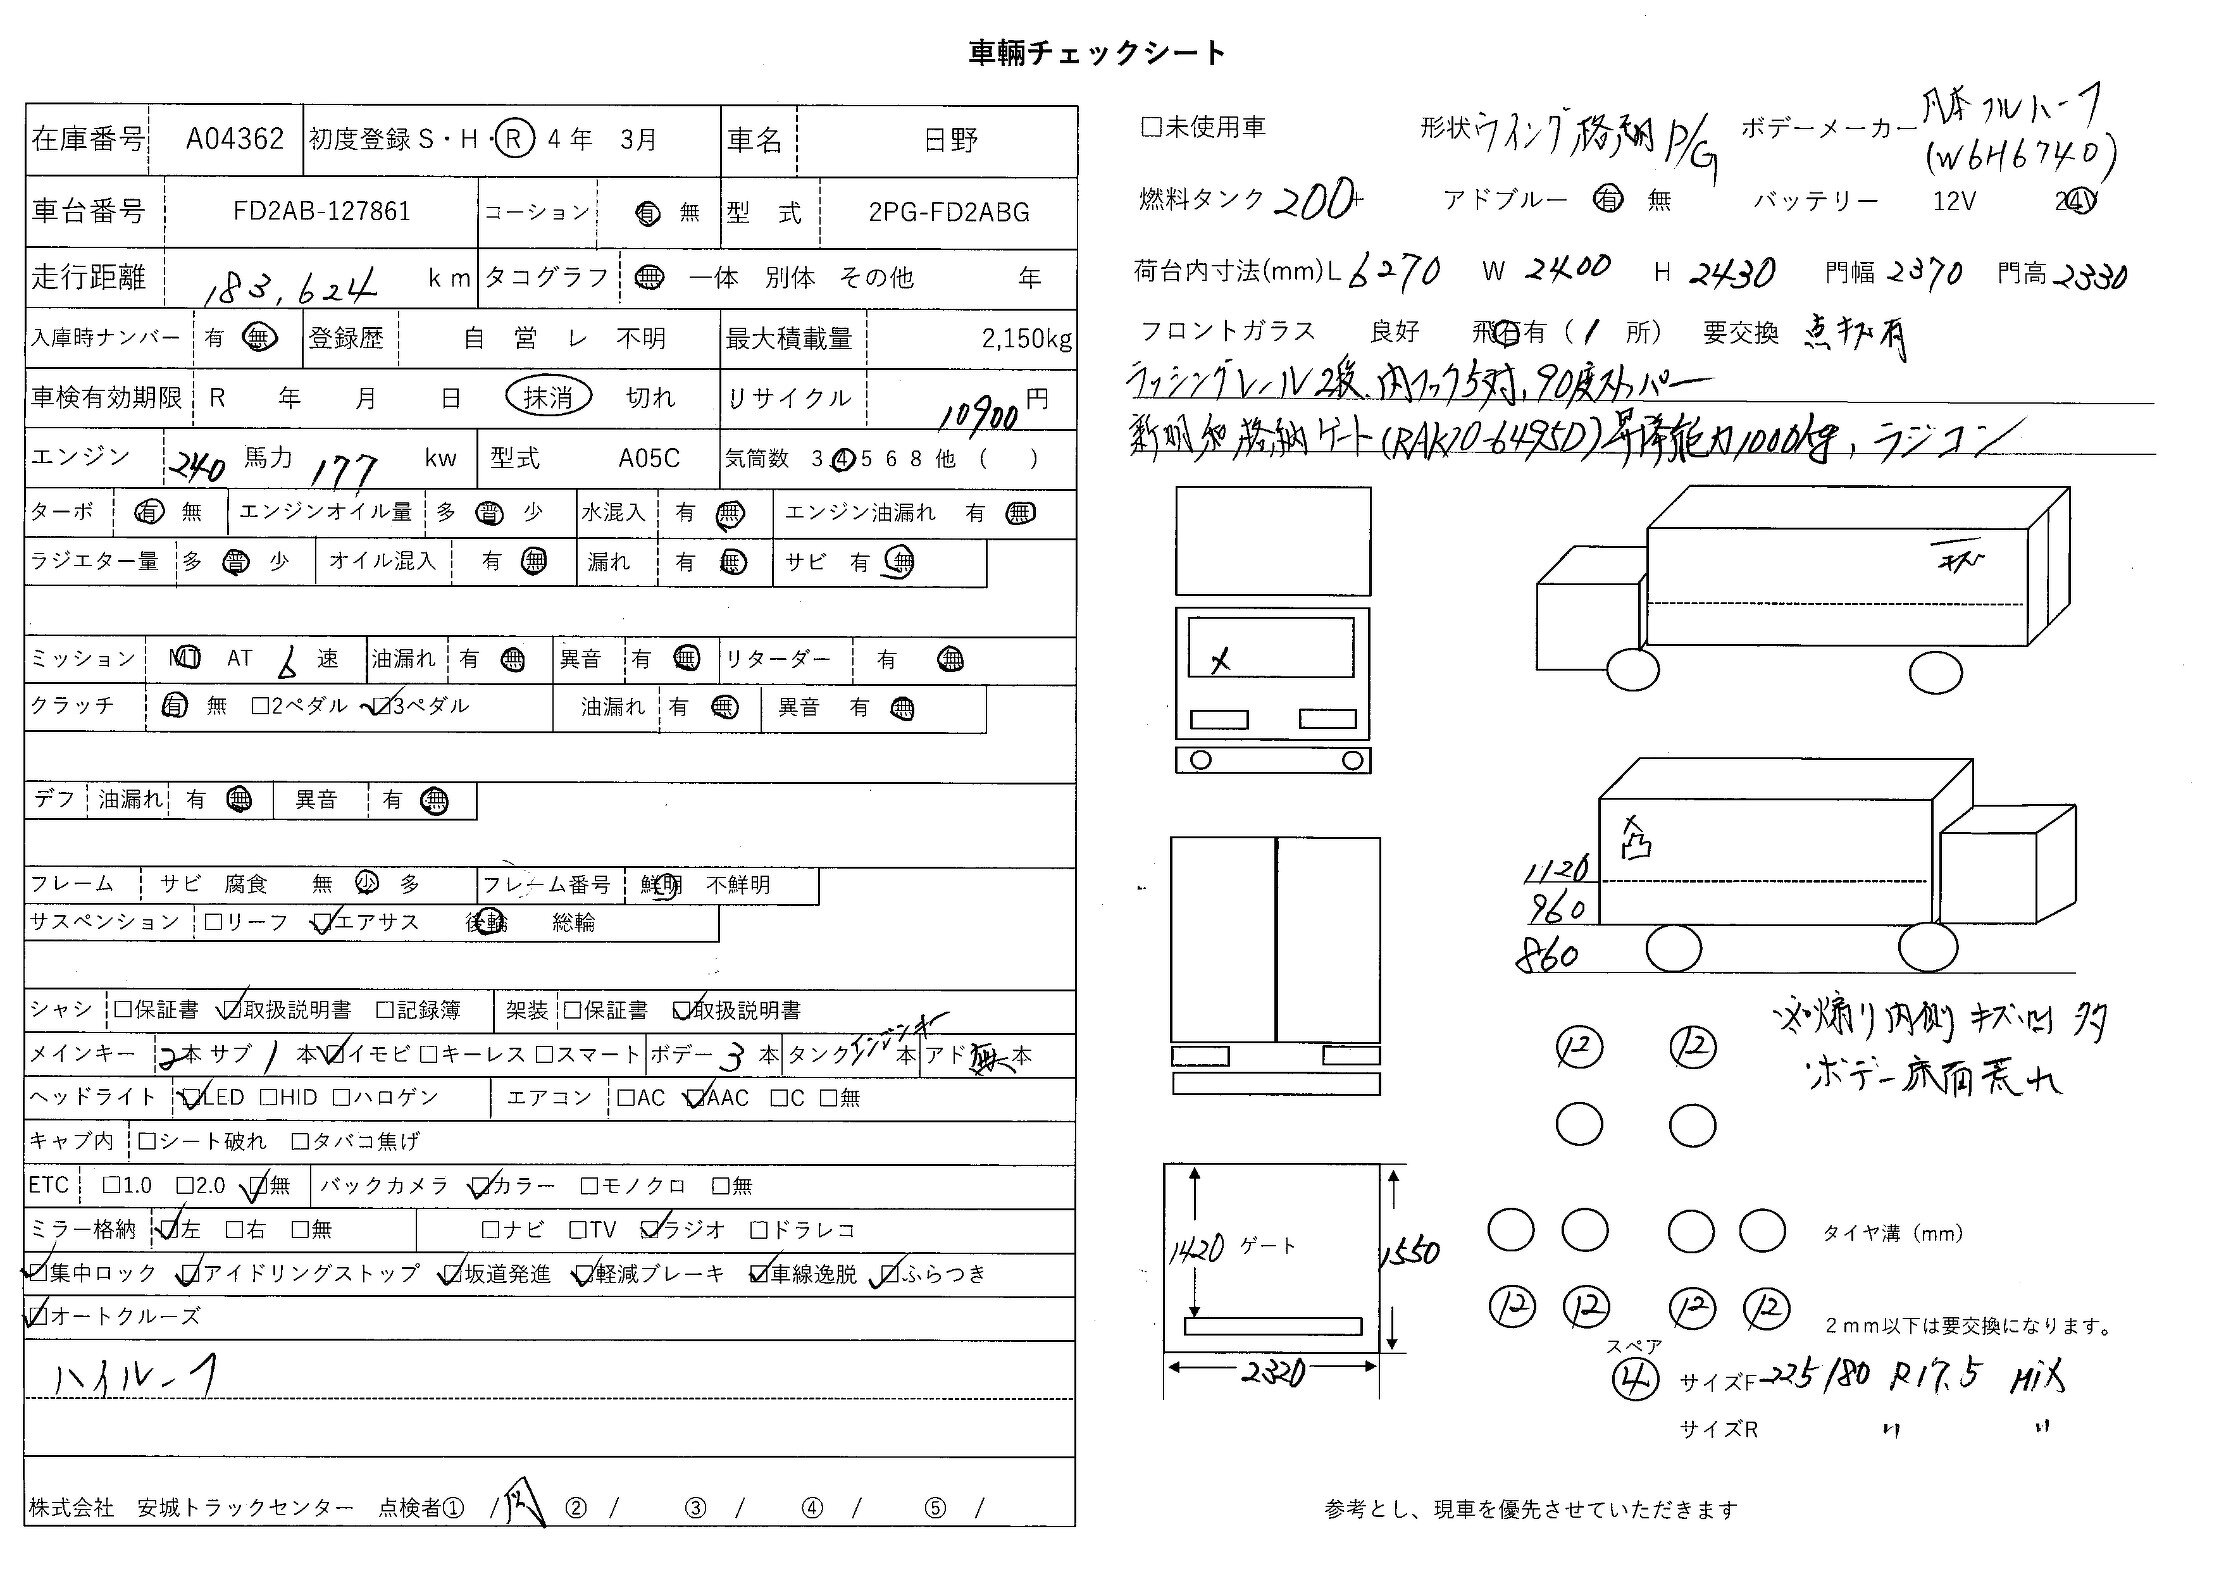 車輛チェックシート
在庫番号 A04362 初度登録 S・H・R 4 年 3月 車名 日野
車台番号 FD2AB-127861 コーション 有 無 型 式 2PG-FD2ABG
走行距離 183,624 km タコグラフ 無 一体 別体 その他 年
入庫時ナンバー 有 無 登録歴 自 営 レ 不明 最大積載量 2,150kg
車検有効期限 R 年 月 日 抹消 切れ リサイクル 10900 円
エンジン 240 馬力 177 kw 型式 A05C 気筒数 3 4 5 6 8 他 ( )
ターボ 有 無 エンジンオイル量 多 普 少 水混入 有 無 エンジン油漏れ 有 無
ラジエター量 多 普 少 オイル混入 有 無 漏れ 有 無 サビ 有 無
ミッション MT AT 6 速 油漏れ 有 無 異音 有 無 リターダー 有 無
クラッチ 有 無 □2ペダル ☑3ペダル 油漏れ 有 無 異音 有 無
デフ 油漏れ 有 無 異音 有 無
フレーム サビ 腐食 無 少 多 フレーム番号 鮮明 不鮮明
サスペンション □リーフ ☑エアサス 後輪 総輪
シャシ □保証書 ☑取扱説明書 □記録簿 架装 □保証書 ☑取扱説明書
メインキー 2本 サブ 1 本 ☑イモビ □キーレス □スマート ボデー 3 本 タンク エンジンキー 本 アド 無 本
ヘッドライト ☑LED □HID □ハロゲン エアコン □AC ☑AAC □C □無
キャブ内 □シート破れ □タバコ焦げ
ETC □1.0 □2.0 ☑無 バックカメラ ☑カラー □モノクロ □無
ミラー格納 ☑左 □右 □無 □ナビ □TV ☑ラジオ □ドラレコ
☑集中ロック ☑アイドリングストップ ☑坂道発進 ☑軽減ブレーキ ☑車線逸脱 ☑ふらつき
☑オートクルーズ
ハイルーフ
株式会社 安城トラックセンター 点検者① / ② / ③ / ④ / ⑤ /
□未使用車 形状 ウイング 格納P/G ボデーメーカー 日本フルハーフ
(W6H6740)
燃料タンク 200 アドブルー 有 無 バッテリー 12V 24V
荷台内寸法(mm) L 6270 W 2400 H 2430 門幅 2370 門高 2330
フロントガラス 良好 飛石有 ( 1 所) 要交換 点キズ有
ラッシングレール2段、内フック5対、90度ストッパー
新明和 格納ゲート(RAK10-6495D)昇降能力1000kg, ラジコン
キズ
X
X
凸
1120
960
860
※煽り内側 キズ凹 多
・ボデー床面荒れ
12 12
1420 ゲート 1550
2320
タイヤ溝 (mm)
12 12 12 12
2mm以下は要交換になります。
スペア
4 サイズF 225/80 R17.5 MIX
サイズR 〃 〃
参考とし、現車を優先させていただきます